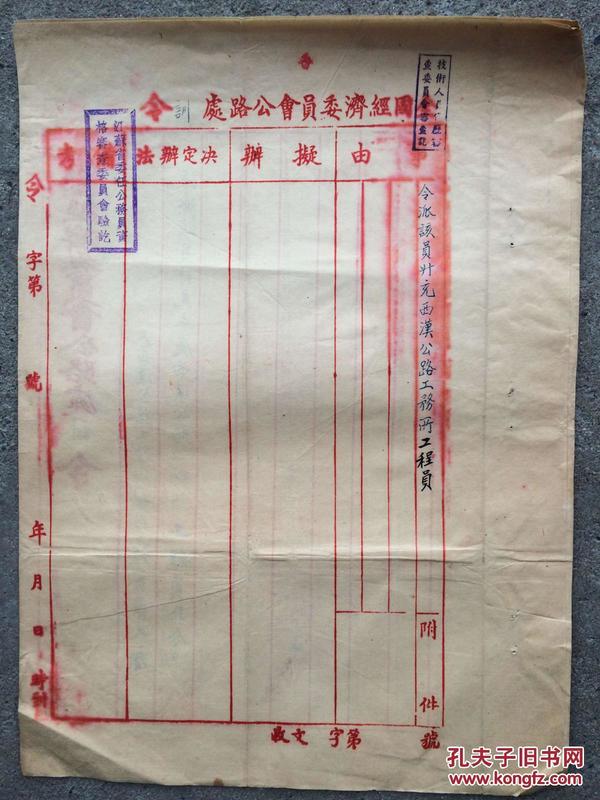 國經濟委員會公路處 訓 令
技術人員
查委員會審查訖
由
擬辦
決定辦法
考
令派該員升充西漢公路工務所工程員
江蘇省委任公務員資
格審查委員會驗訖
附件
令 字第 號 年 月 日 時到
收文 字第 號
孔夫子旧书网
www.kongfz.com